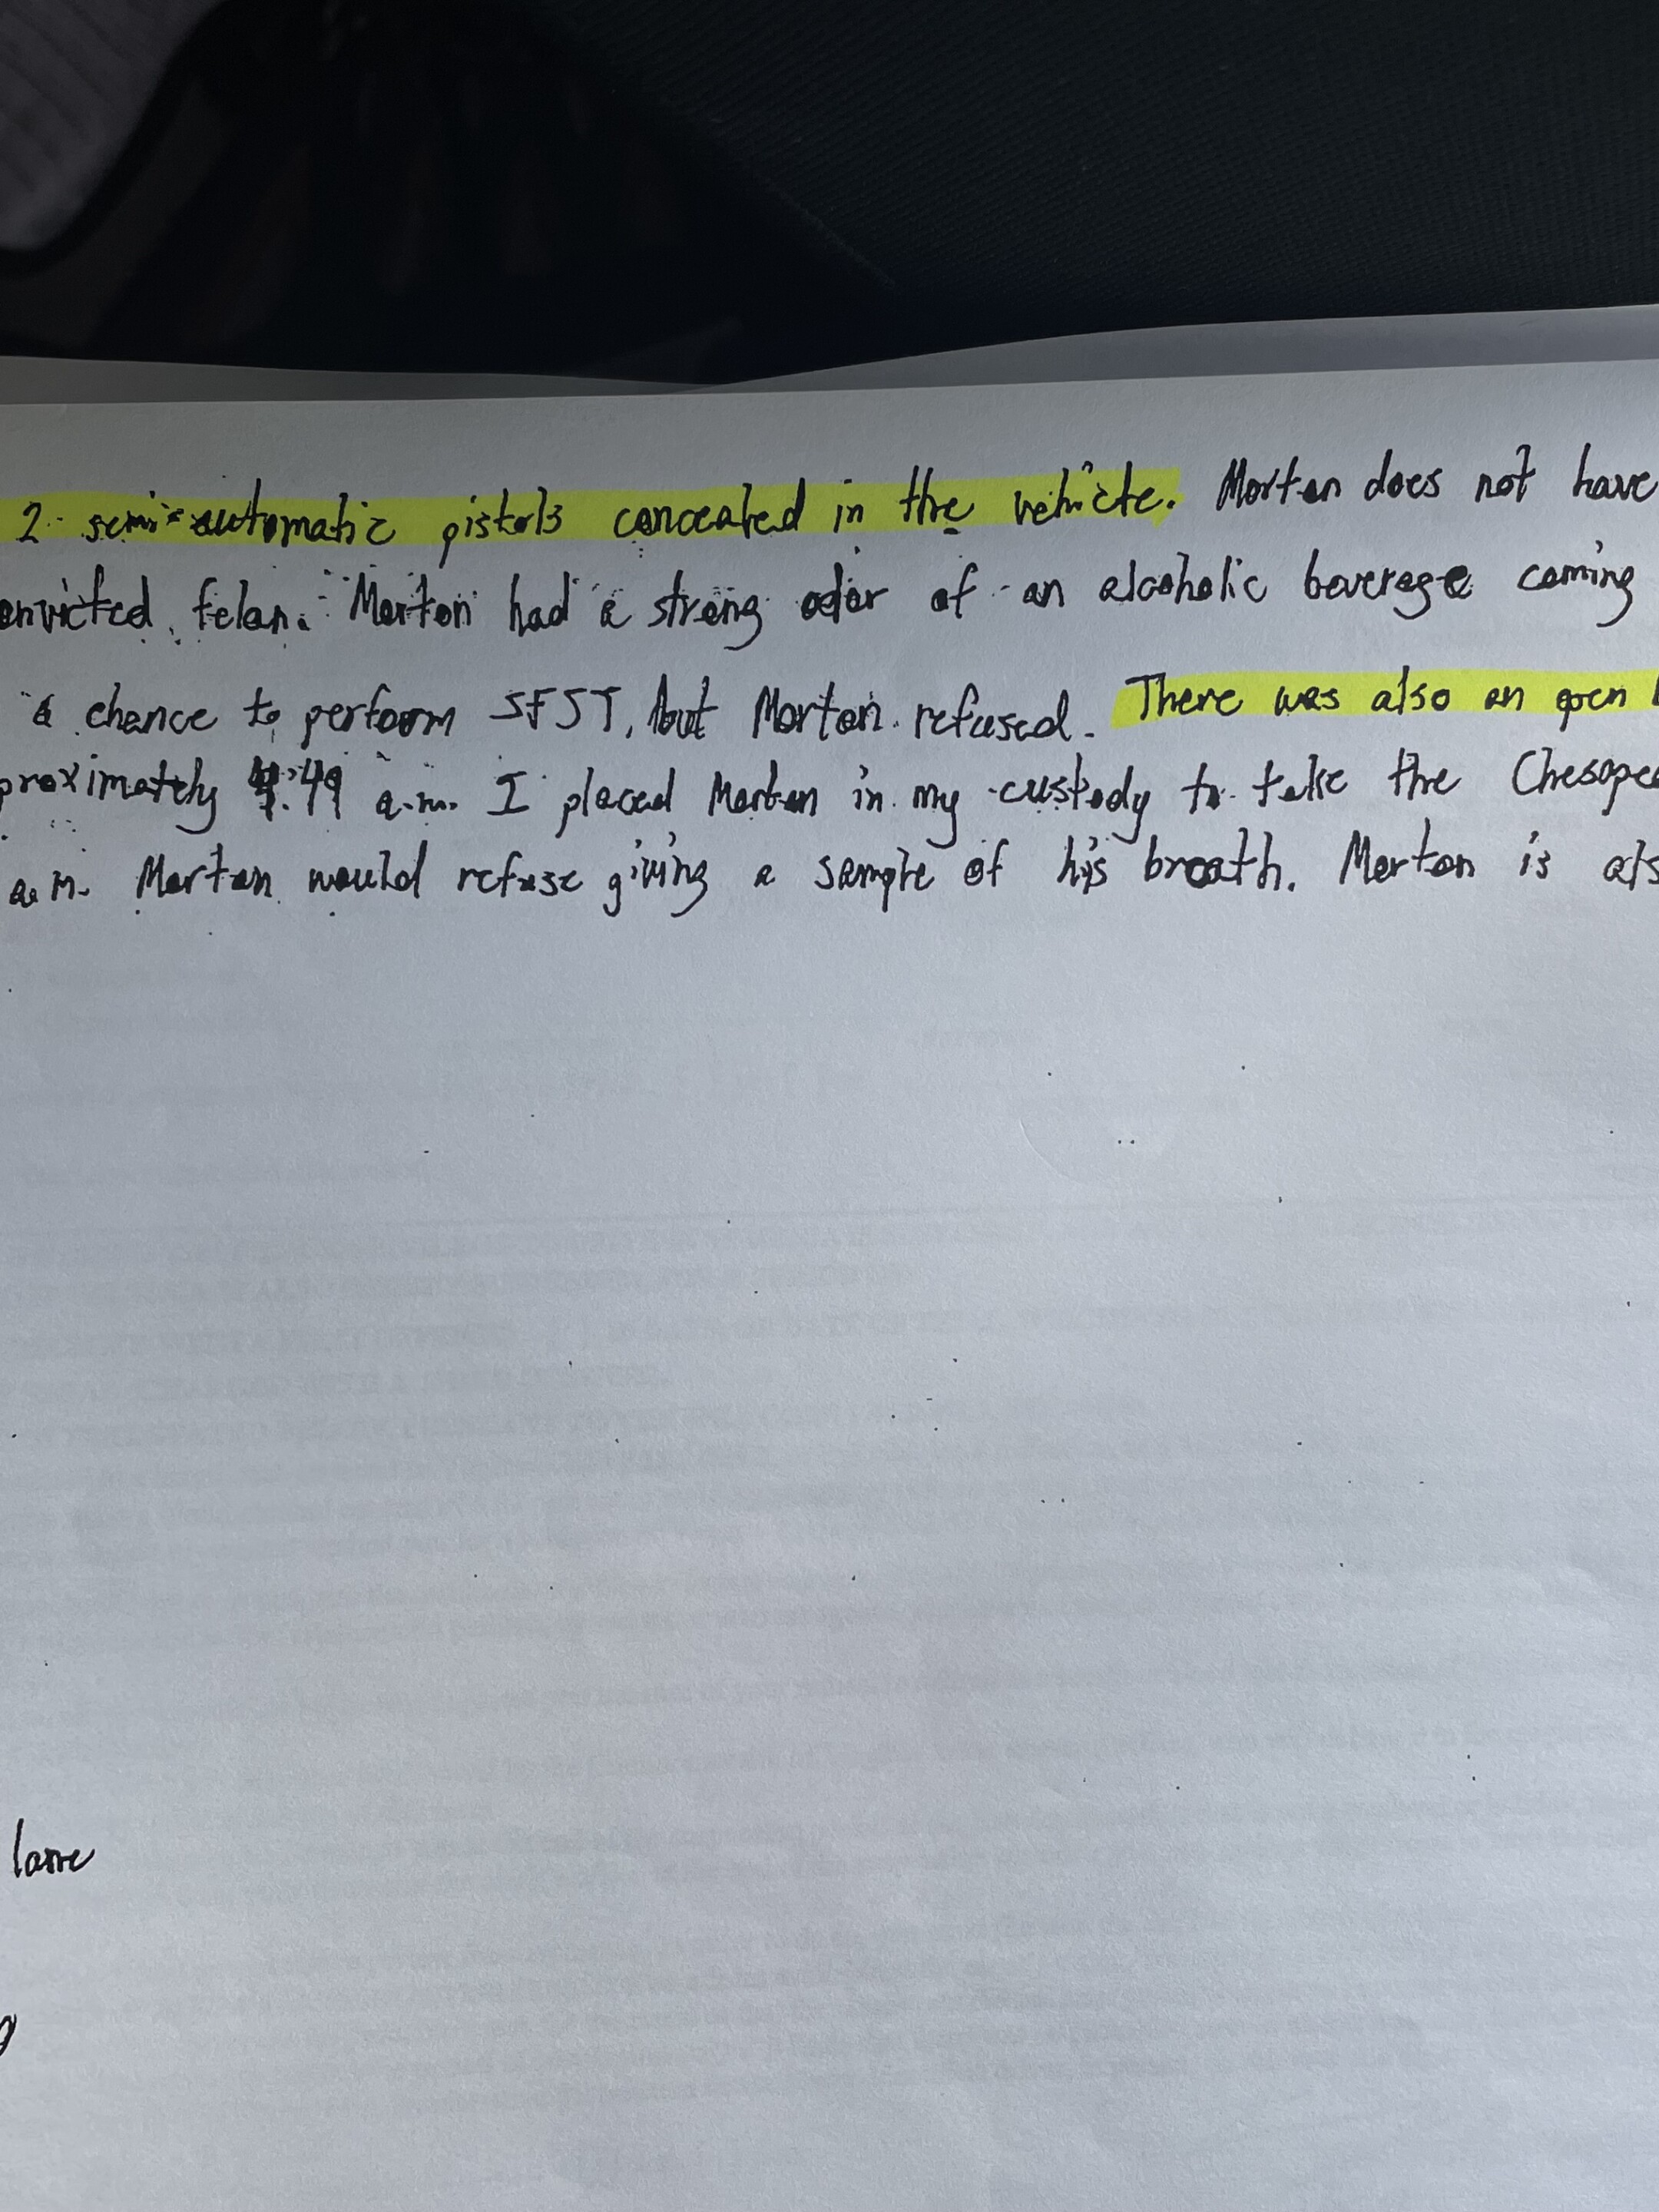 2 semi-automatic pistols concealed in the vehicle. Morton does not have
onvicted felon. Morton had a strong odor of an alcoholic beverage coming
a chance to perform SFST, but Morton refused. There was also an open
proximately 4:49 a.m. I placed Morton in my custody to take the Chesapea
a.m. Morton would refuse giving a sample of his breath. Morton is als
lane